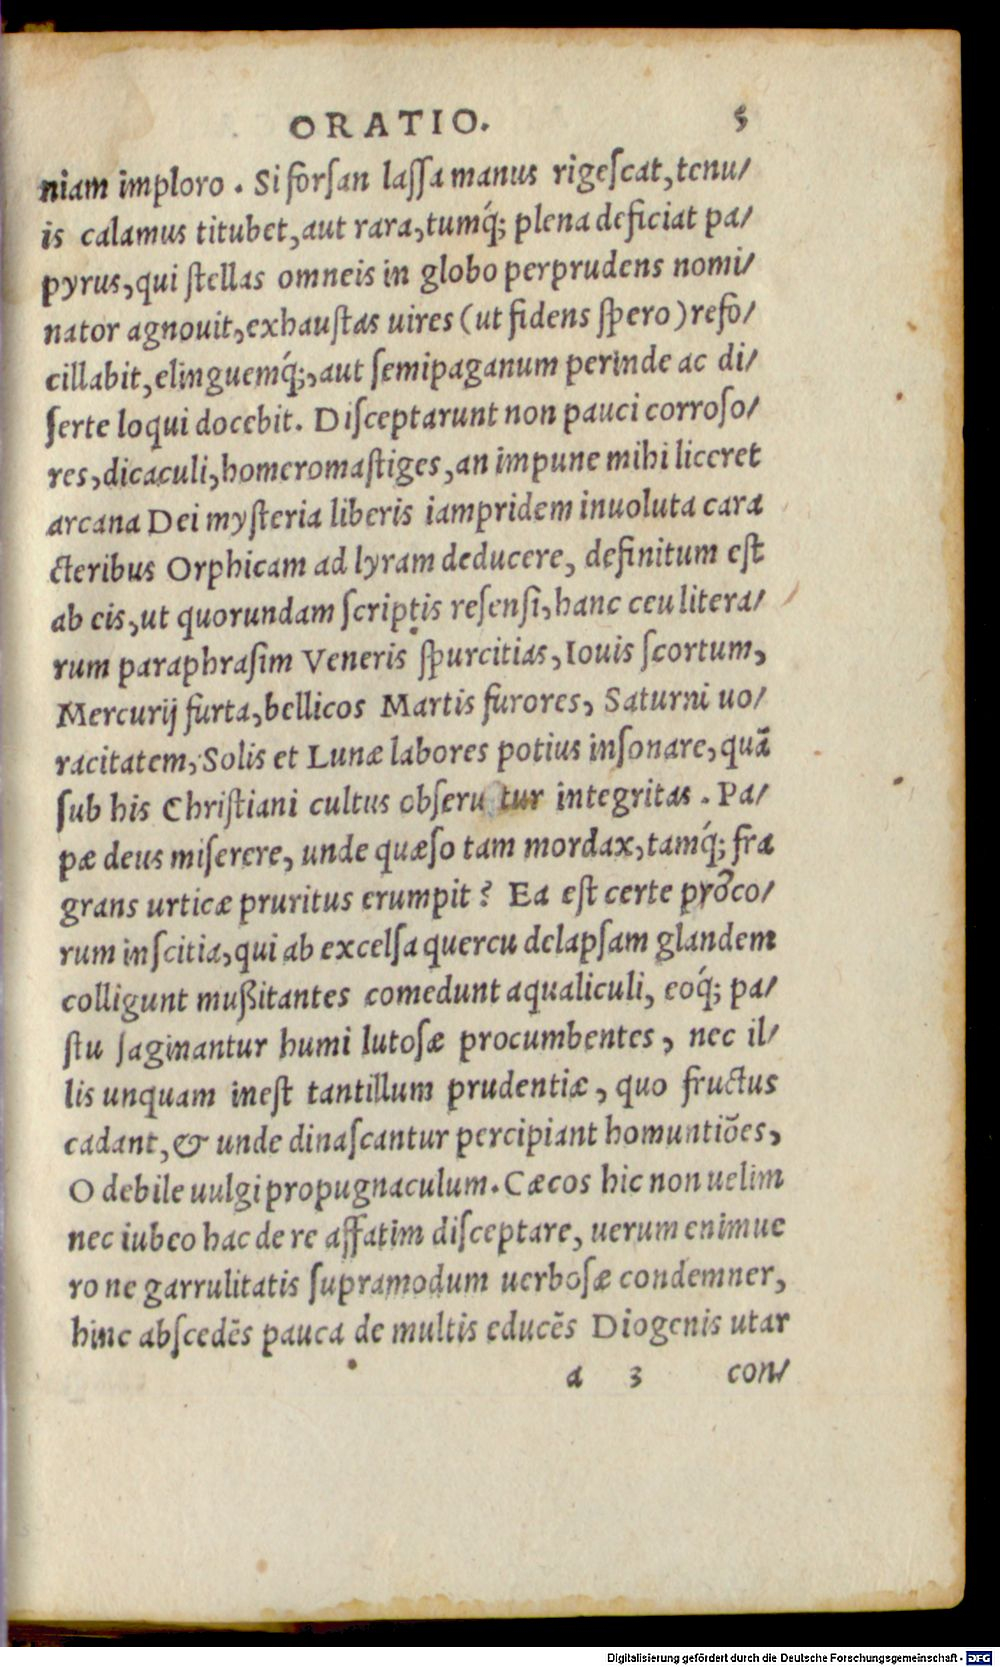 ORATIO. 5
niam imploro. Si forſan laſſa manus rigeſcat, tenu/
is calamus titubet, aut rara, tumq́; plena deficiat pa/
pyrus, qui ſtellas omneis in globo perprudens nomi/
nator agnouit, exhauſtas uires (ut fidens ſpero) refo/
cillabit, elinguemq́;, aut ſemipaganum perinde ac di/
ſerte loqui docebit. Diſceptarunt non pauci corroſo/
res, dicaculi, homeromaſtiges, an impune mihi liceret
arcana Dei myſteria liberis iampridem inuoluta cara
cteribus Orphicam ad lyram deducere, definitum eſt
ab eis, ut quorundam ſcriptis reſenſi, hanc ceu litera/
rum paraphraſim Veneris ſpurcitias, Iouis ſcortum,
Mercurij furta, bellicos Martis furores, Saturni uo/
racitatem, Solis et Lunæ labores potius inſonare, quã
ſub his Chriſtiani cultus obſeru tur integritas. Pa/
pæ deus miſerere, unde quæſo tam mordax, tamq́; fra
grans urticæ pruritus erumpit? Ea eſt certe porco/
rum inſcitia, qui ab excelſa quercu delapſam glandem
colligunt mußitantes comedunt aqualiculi, eoq́; pa/
ſtu ſaginantur humi lutoſæ procumbentes, nec il/
lis unquam ineſt tantillum prudentiæ, quo fructus
cadant, & unde dinaſcantur percipiant homuntiões,
O debile uulgi propugnaculum. Cæcos hic non uelim
nec iubeo hac de re affatim diſceptare, uerum enimue
ro ne garrulitatis ſupramodum uerboſæ condemner,
hinc abſcedẽs pauca de multis educẽs Diogenis utar
a 3 con/
Digitalisierung gefördert durch die Deutsche Forschungsgemeinschaft - DFG